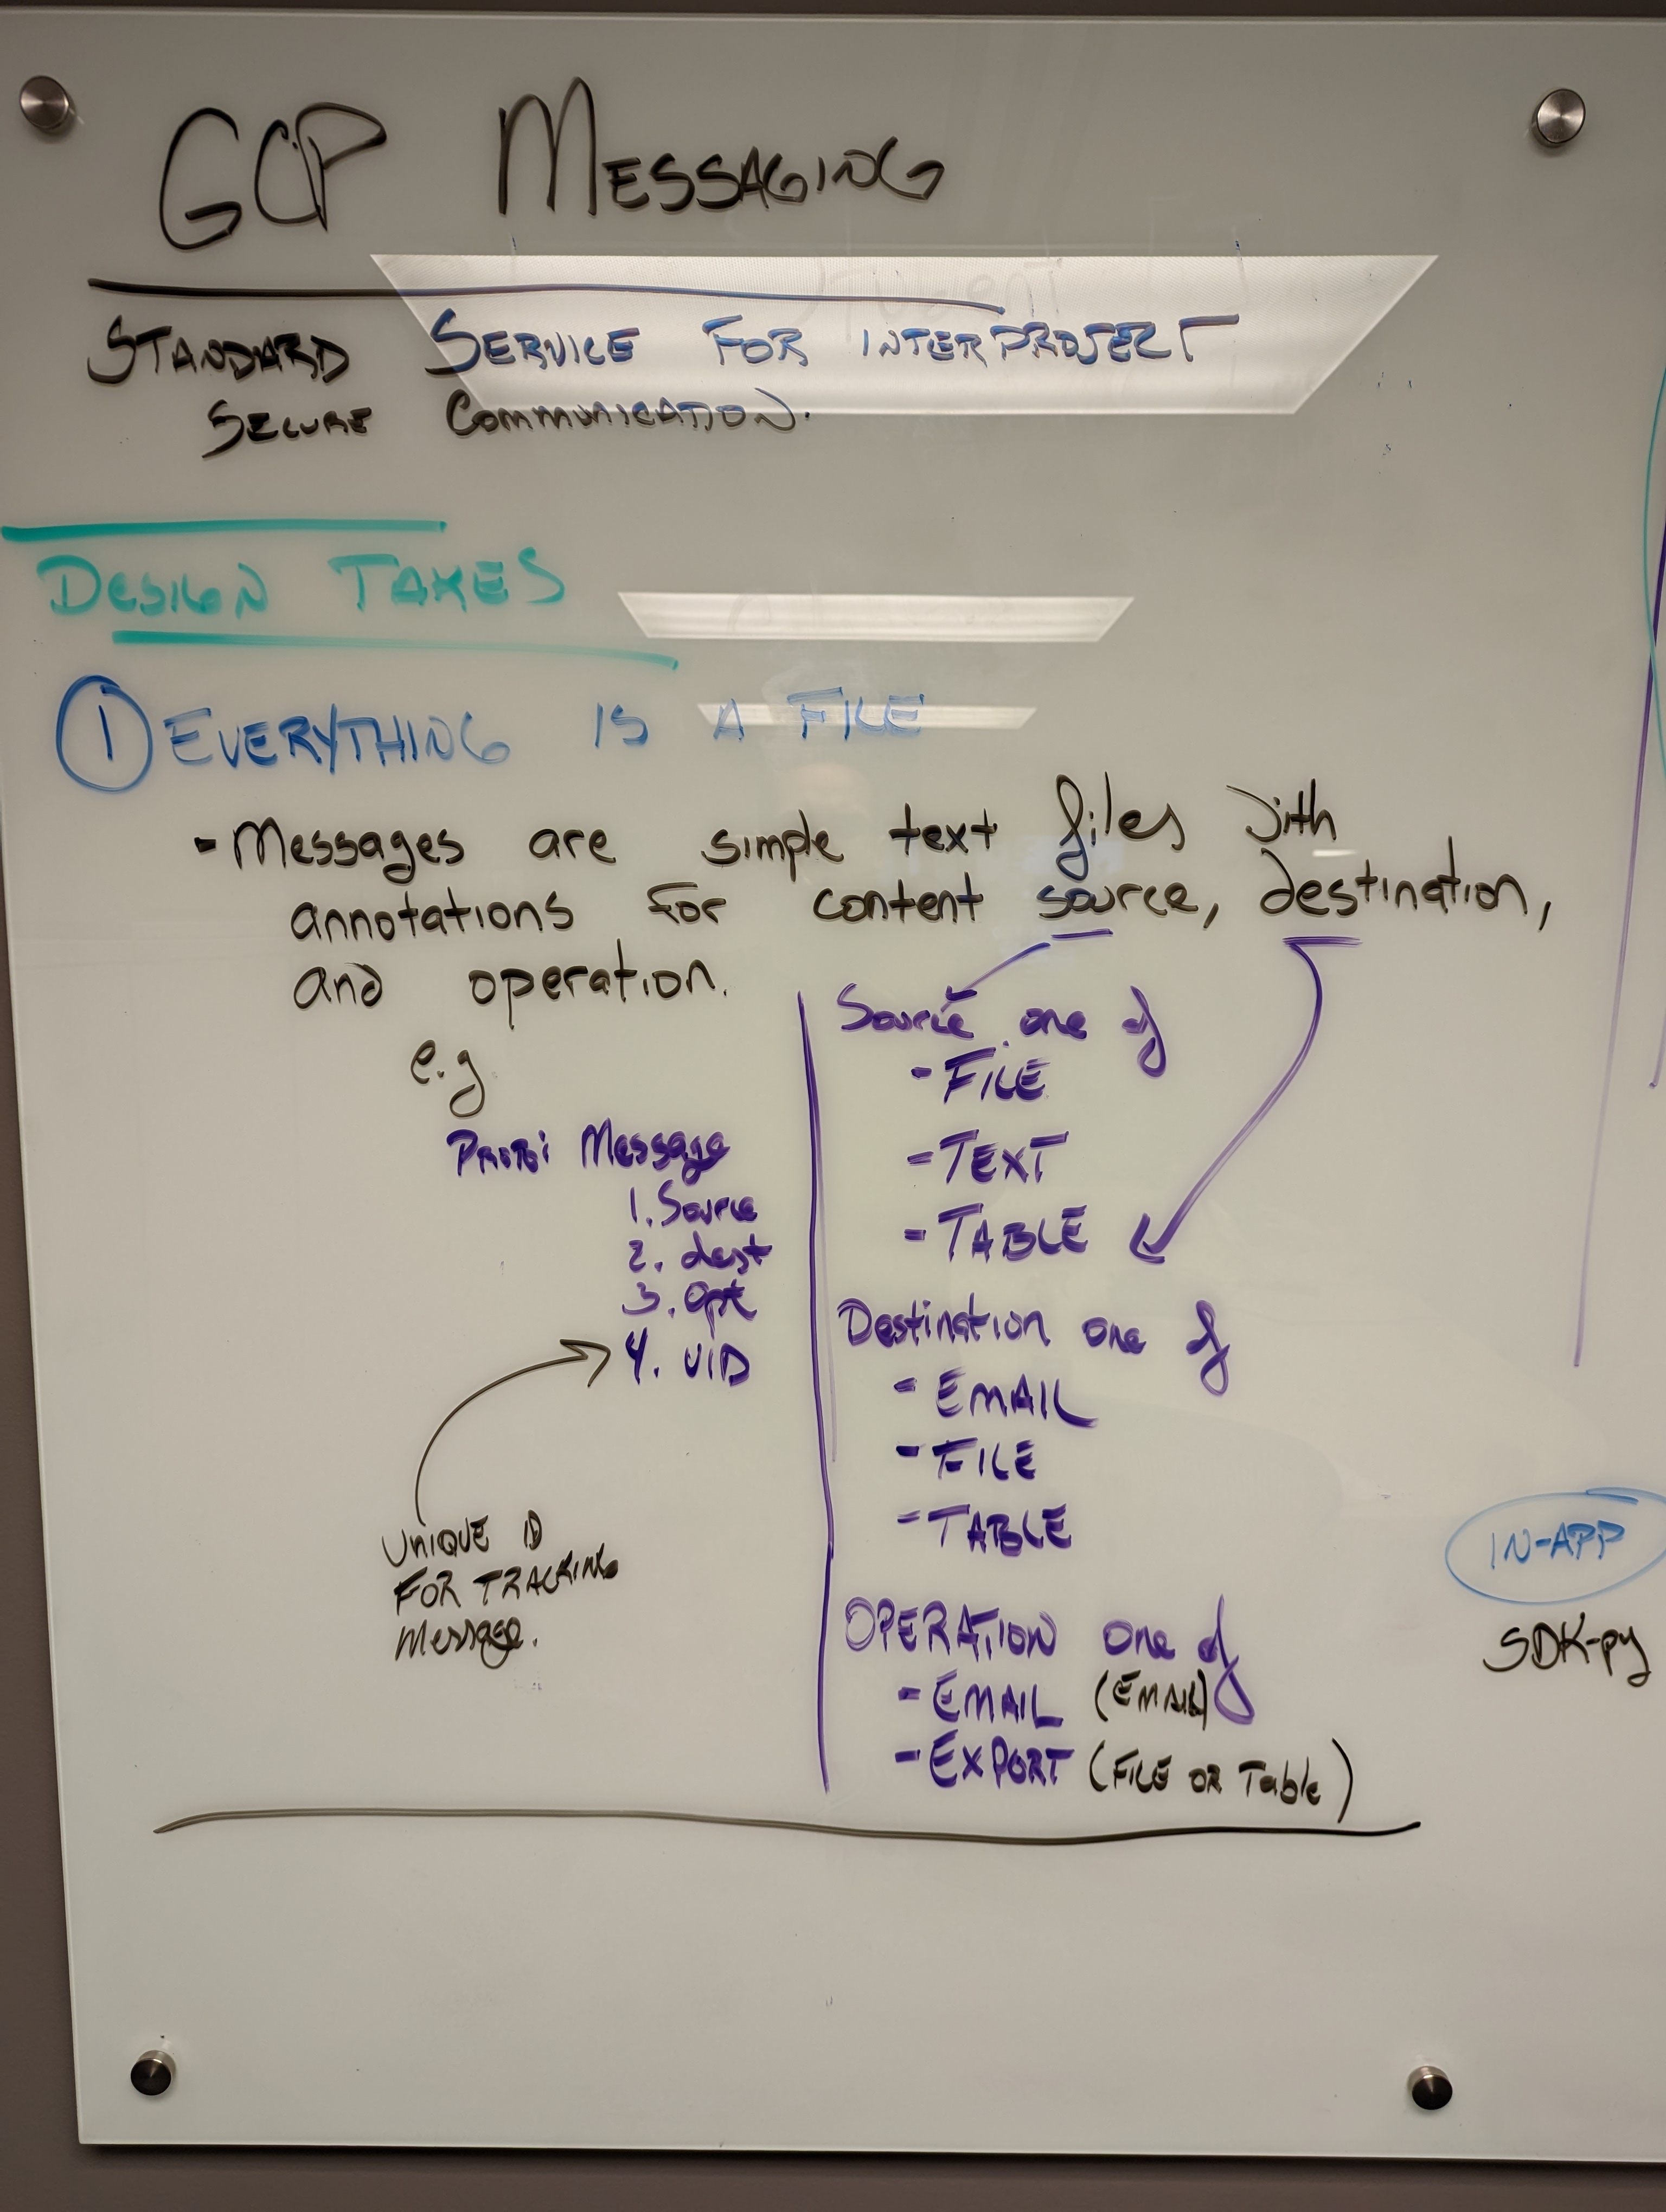 GCP MESSAGING
STANDARD SERVICE FOR INTERPROJECT
SECURE COMMUNICATION.
DESIGN TAKES
1 EVERYTHING IS A FILE
- Messages are simple text files with
annotations for content source, destination,
and operation.
e.g
Proto: Message
1. Source
2. dest
3. Opt
4. UID
UNIQUE ID
FOR TRACKING
Message.
Source one of
- FILE
- TEXT
- TABLE
Destination one of
- EMAIL
- FILE
- TABLE
OPERATION one of
- EMAIL (EMAIL)
- EXPORT (FILE OR Table)
IN-APP
SDK-py